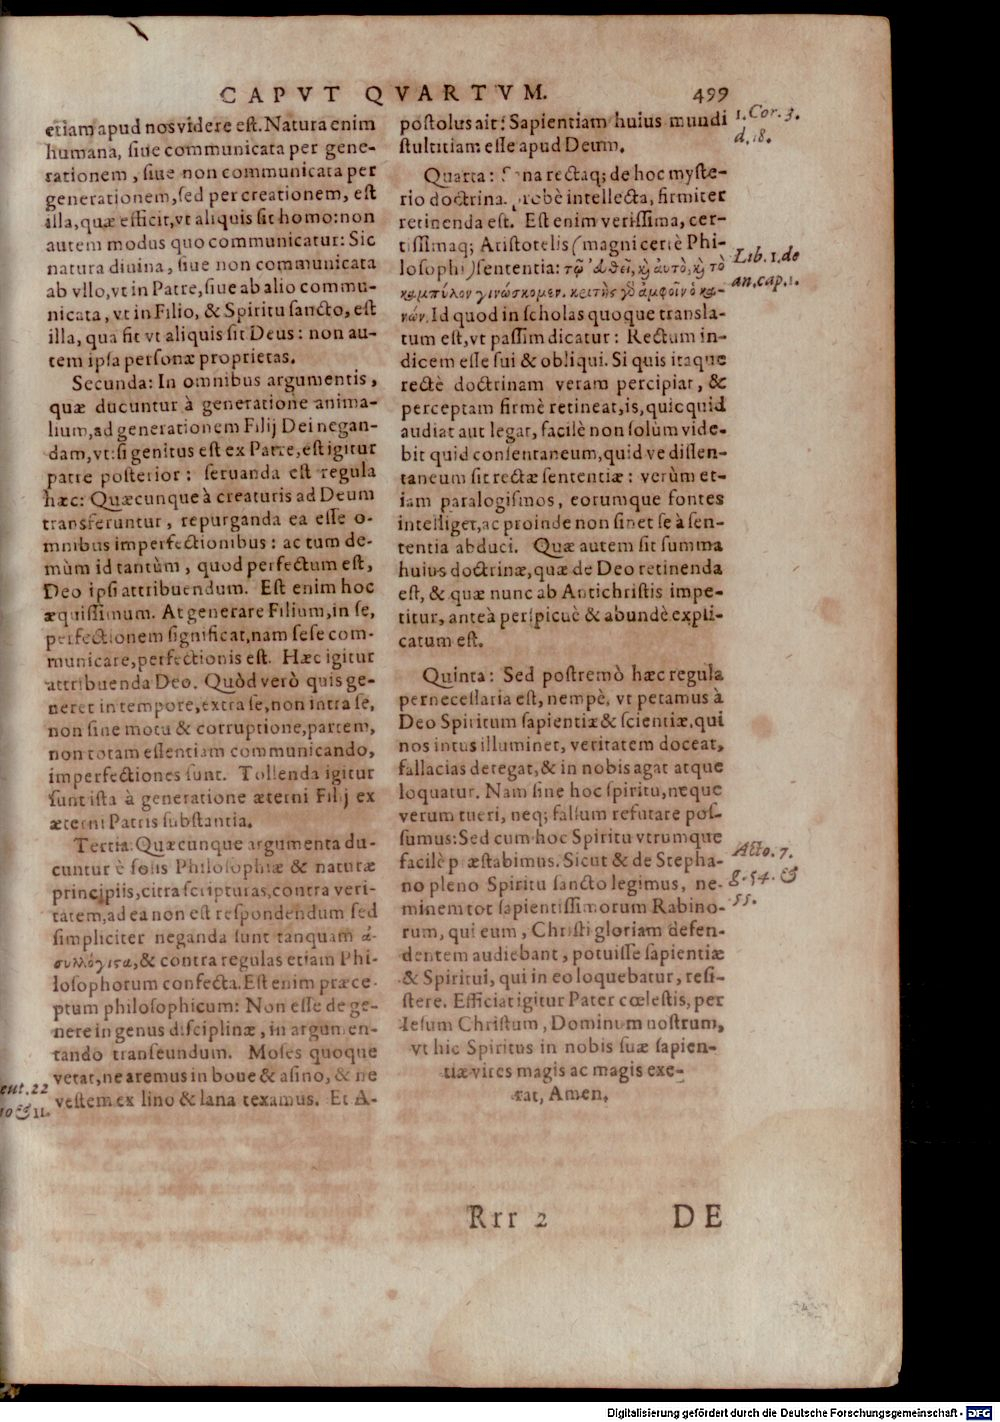 CAPVT QVARTVM. 499
etiam apud nos videre est. Natura enim
humana, siue communicata per gene-
rationem, siue non communicata per
generationem, sed per creationem, est
illa, quæ efficit, vt aliquis sit homo: non
autem modus quo communicatur: Sic
natura diuina, siue non communicata
ab vllo, vt in Patre, siue ab alio commu-
nicata, vt in Filio, & Spiritu sancto, est
illa, qua fit vt aliquis sit Deus: non au-
tem ipsa personæ proprietas.
Secunda: In omnibus argumentis,
quæ ducuntur à generatione anima-
lium, ad generationem Filij Dei negan-
dam, vt: si genitus est ex Patre, est igitur
patre posterior: seruanda est regula
hæc: Quæcunque à creaturis ad Deum
transferuntur, repurganda ea esse o-
mnibus imperfectionibus: ac tum de-
mùm id tantùm, quod perfectum est,
Deo ipsi attribuendum. Est enim hoc
æquissimum. At generare Filium, in se,
perfectionem significat, nam sese com-
municare, perfectionis est. Hæc igitur
attribuenda Deo. Quòd verò quis ge-
neret in tempore, extra se, non intra se,
non sine motu & corruptione, partem,
non totam essentiam communicando,
imperfectiones sunt. Tollenda igitur
sunt ista à generatione æterni Filij ex
æterni Patris substantia.
Tertia: Quæcunque argumenta du-
cuntur è solis Philosophiæ & naturæ
principiis, citra scripturas, contra veri-
tatem, ad ea non est respondendum sed
simpliciter neganda sunt tanquam ἀ-
συλλόγιστα, & contra regulas etiam Phi-
losophorum confecta. Est enim præce-
ptum philosophicum: Non esse de ge-
nere in genus disciplinæ, in argumen-
tando transeundum. Moses quoque
vetat, ne aremus in boue & asino, & ne
vestem ex lino & lana texamus. Et A-
eut. 22
10 & 11.
postolus ait: Sapientiam huius mundi
stultitiam esse apud Deum.
1. Cor. 3.
d. 18.
Quarta: Sana rectaq; de hoc myste-
rio doctrina, probè intellecta, firmiter
retinenda est. Est enim verissima, cer-
tissimaq; Aristotelis (magni certè Phi-
losophi) sententia: τῷ εὐθεῖ, καὶ αὐτὸ, καὶ τὸ
καμπύλον γινώσκομεν. κριτὴς γὰρ ἀμφοῖν ὁ κα-
νών. Id quod in scholas quoque transla-
tum est, vt passim dicatur: Rectum in-
dicem esse sui & obliqui. Si quis itaque
rectè doctrinam veram percipiat, &
perceptam firmè retineat, is, quicquid
audiat aut legat, facilè non solùm vide-
bit quid consentaneum, quid ve dissen-
taneum sit rectæ sententiæ: verùm et-
iam paralogismos, eorumque fontes
intelliget, ac proinde non sinet se à sen-
tentia abduci. Quæ autem sit summa
huius doctrinæ, quæ de Deo retinenda
est, & quæ nunc ab Antichristis impe-
titur, anteà perspicuè & abundè expli-
catum est.
Lib. 1. de
an. cap. 1.
Quinta: Sed postremò hæc regula
pernecessaria est, nempè, vt petamus à
Deo Spiritum sapientiæ & scientiæ, qui
nos intus illuminet, veritatem doceat,
fallacias detegat, & in nobis agat atque
loquatur. Nam sine hoc spiritu, neque
verum tueri, neq; falsum refutare pos-
sumus: Sed cum hoc Spiritu vtrumque
facilè præstabimus. Sicut & de Stepha-
no pleno Spiritu sancto legimus, ne-
minem tot sapientissimorum Rabino-
rum, qui eum, Christi gloriam defen-
dentem audiebant, potuisse sapientiæ
& Spiritui, qui in eo loquebatur, resi-
stere. Efficiat igitur Pater cœlestis, per
Iesum Christum, Dominum nostrum,
vt hic Spiritus in nobis suæ sapien-
tiæ vires magis ac magis exe-
rat, Amen.
Acto. 7.
g. 54. &
55.
Rrr 2 DE
Digitalisierung gefördert durch die Deutsche Forschungsgemeinschaft - DFG